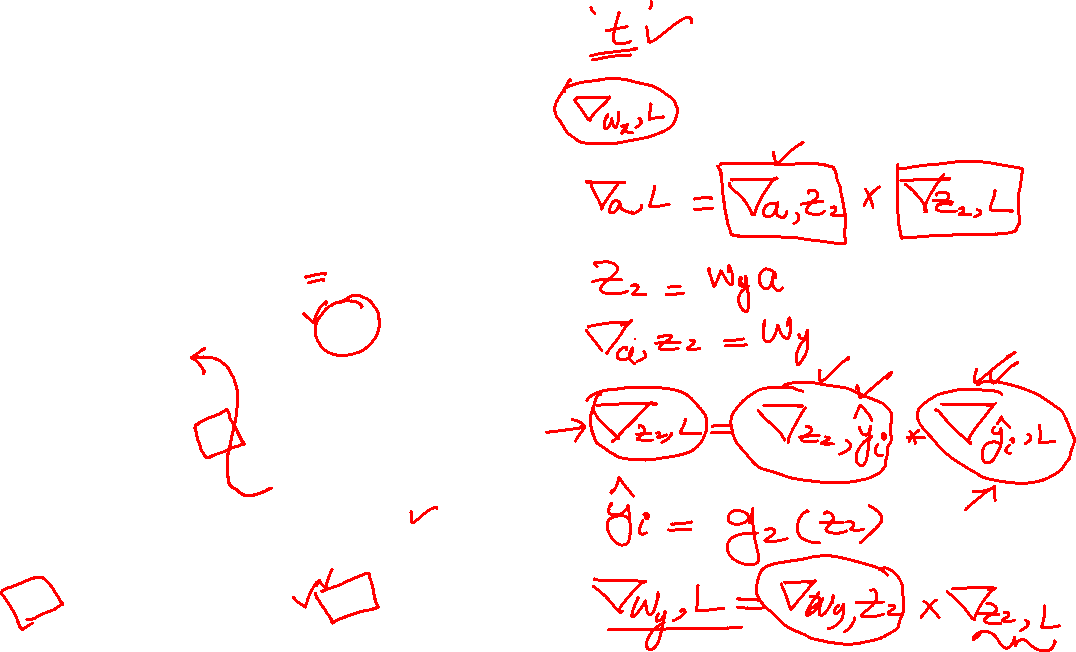 't' ✓
∇w_x, L
∇a, L = ∇a, z₂ × ∇z₂, L
z₂ = w_y a
∇a, z₂ = w_y
→ ∇z₂, L = ∇z₂, ŷᵢ * ∇ŷᵢ, L
ŷᵢ = g₂(z₂)
∇w_y, L = ∇w_y, z₂ × ∇z₂, L